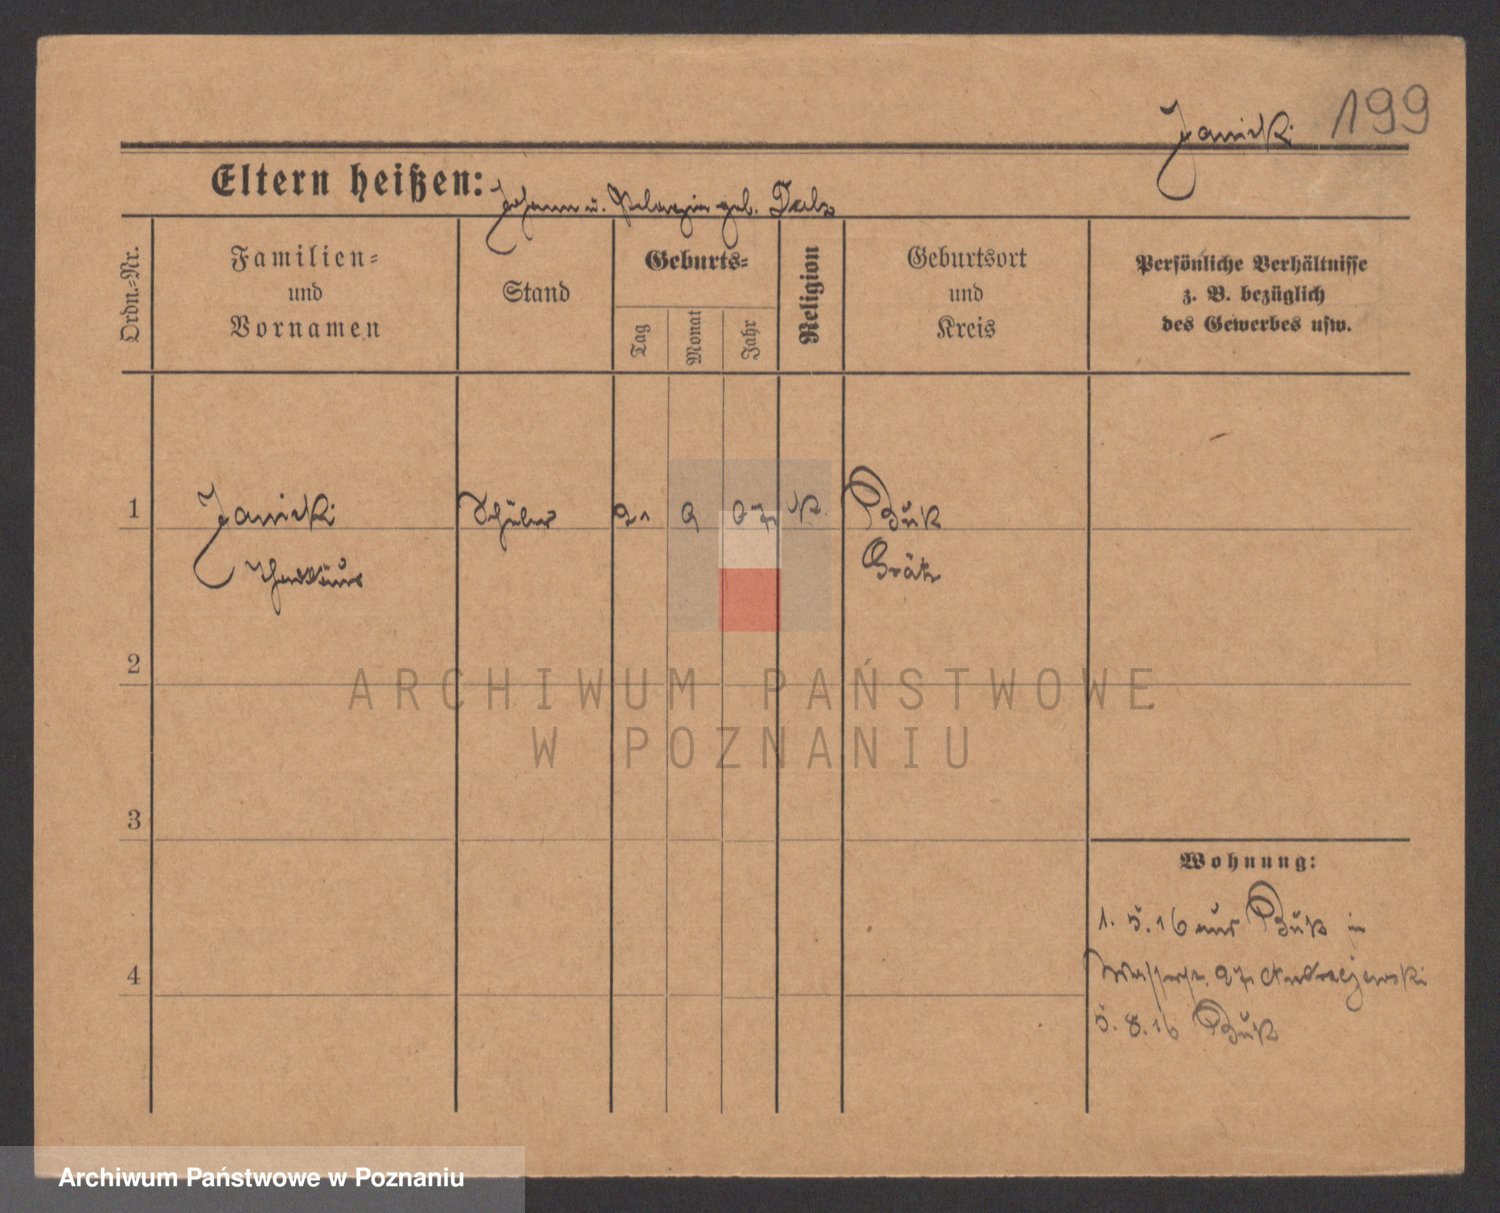 Janicki 199
Eltern heißen: Johann u. Pelagia geb.
Ordn.-Nr.
Familien-
und
Vornamen
Stand
Geburts-
Tag
Monat
Jahr
Religion
Geburtsort
und
Kreis
Persönliche Verhältnisse
z. B. bezüglich
des Gewerbes usw.
1 Janicki Schüler 21 9 02 K. Buk
Thaddäus Grätz
2
3
4
Wohnung:
1. 5. 16 aus Buk in
27 Andrzejewski
5. 8. 16 Buk
ARCHIWUM PAŃSTWOWE
W POZNANIU
Archiwum Państwowe w Poznaniu